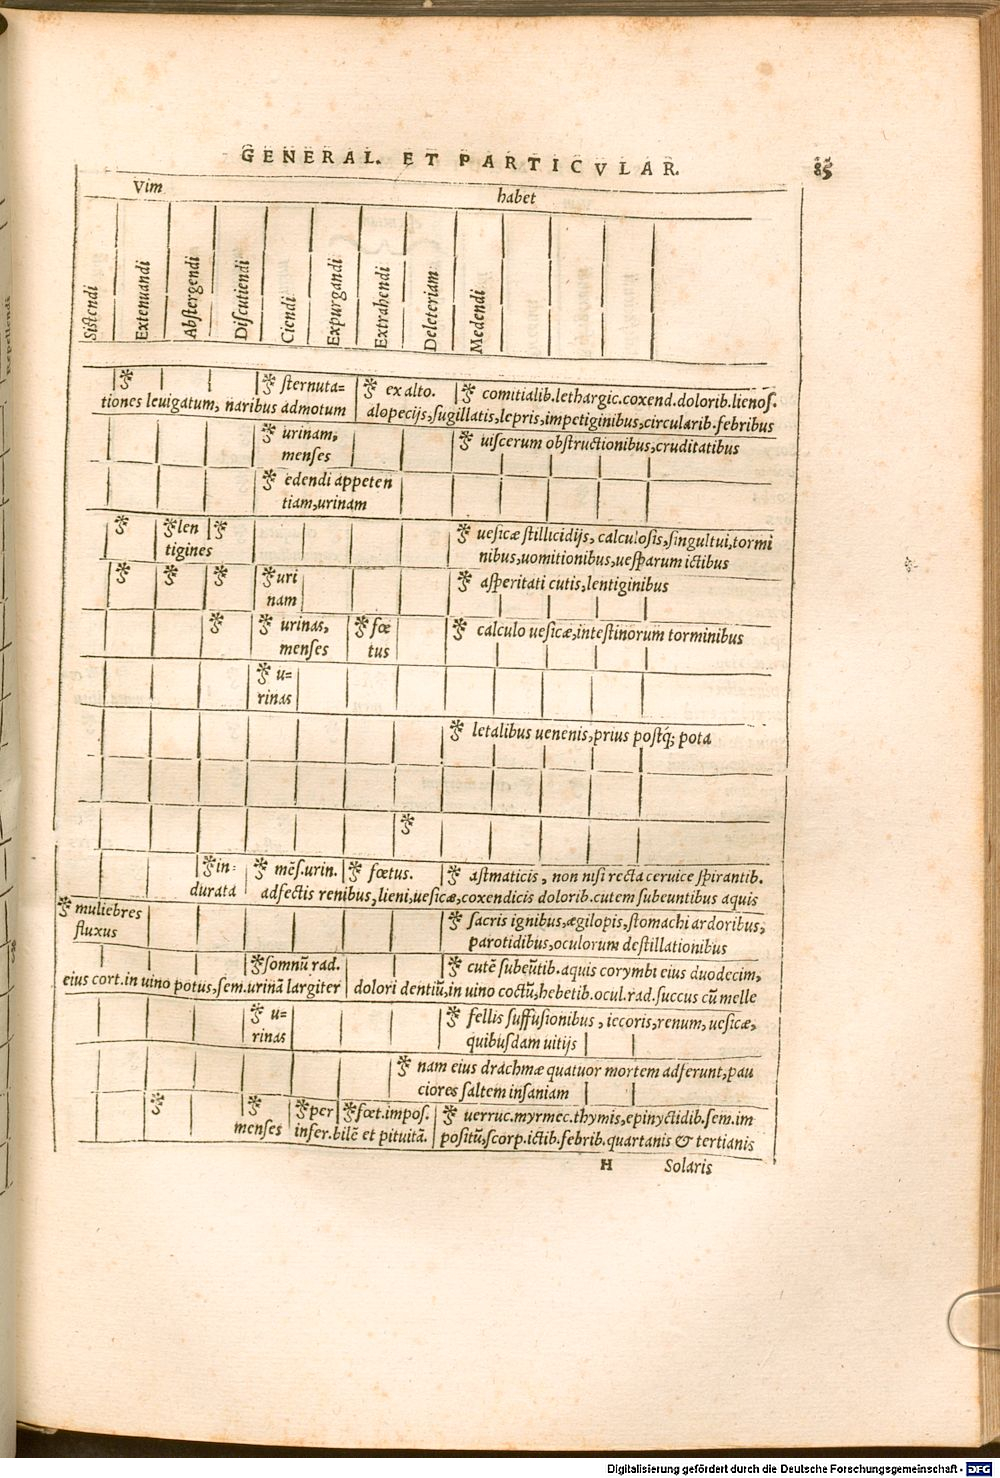 GENERAL. ET PARTICVLAR. 85
Vim habet
Sistendi
Extenuandi
Abstergendi
Discutiendi
Ciendi
Expurgandi
Extrahendi
Deleteriam
Medendi
Repellendi
sternuta=
tiones leuigatum, naribus admotum
ex alto.
comitialib.lethargic.coxend.dolorib.lienos.
alopecijs,sugillatis,lepris,impetiginibus,circularib.febribus
urinam,
menses
uiscerum obstructionibus,cruditatibus
edendi appeten
tiam,urinam
len
tigines
uesicæ stillicidijs, calculosis,singultui,tormi
nibus,uomitionibus,uesparum ictibus
uri
nam
asperitati cutis,lentiginibus
urinas,
menses
fœ
tus
calculo uesicæ,intestinorum torminibus
u=
rinas
letalibus uenenis,prius postq́; pota
in-
durata
mẽs.urin.
fœtus.
astmaticis, non nisi recta ceruice spirantib.
adfectis renibus,lieni,uesicæ,coxendicis dolorib.cutem subeuntibus aquis
muliebres
fluxus
sacris ignibus,ægilopis,stomachi ardoribus,
parotidibus,oculorum destillationibus
somnũ rad.
cutẽ subeũtib.aquis corymbi eius duodecim,
eius cort.in uino potus,sem.urinã largiter
dolori dentiũ,in uino coctũ,hebetib.ocul.rad.succus cũ melle
u=
rinas
fellis suffusionibus, iecoris,renum, uesicæ,
quibusdam uitijs
nam eius drachmæ quatuor mortem adferunt,pau
ciores saltem insaniam
menses
per
infer.bilẽ et pituitã.
fœt.impos.
uerruc.myrmec.thymis,epinyctidib.sem.im
positũ,scorp.ictib.febrib.quartanis & tertianis
H Solaris
Digitalisierung gefördert durch die Deutsche Forschungsgemeinschaft - DFG